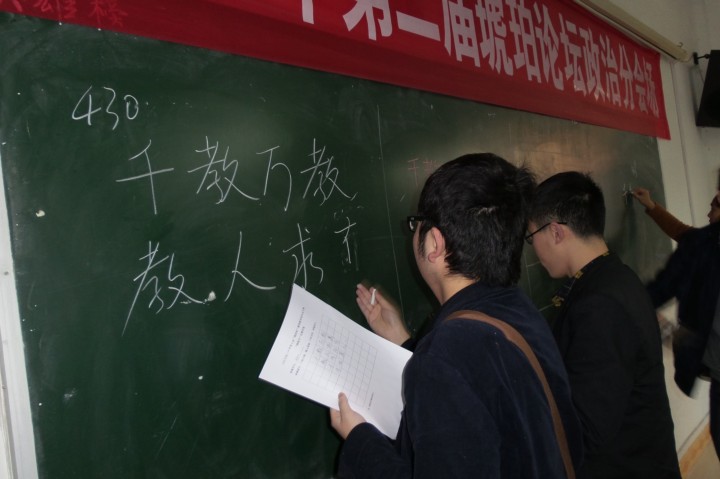 第二届琥珀论坛政治分会场
430
千教万教
教人求